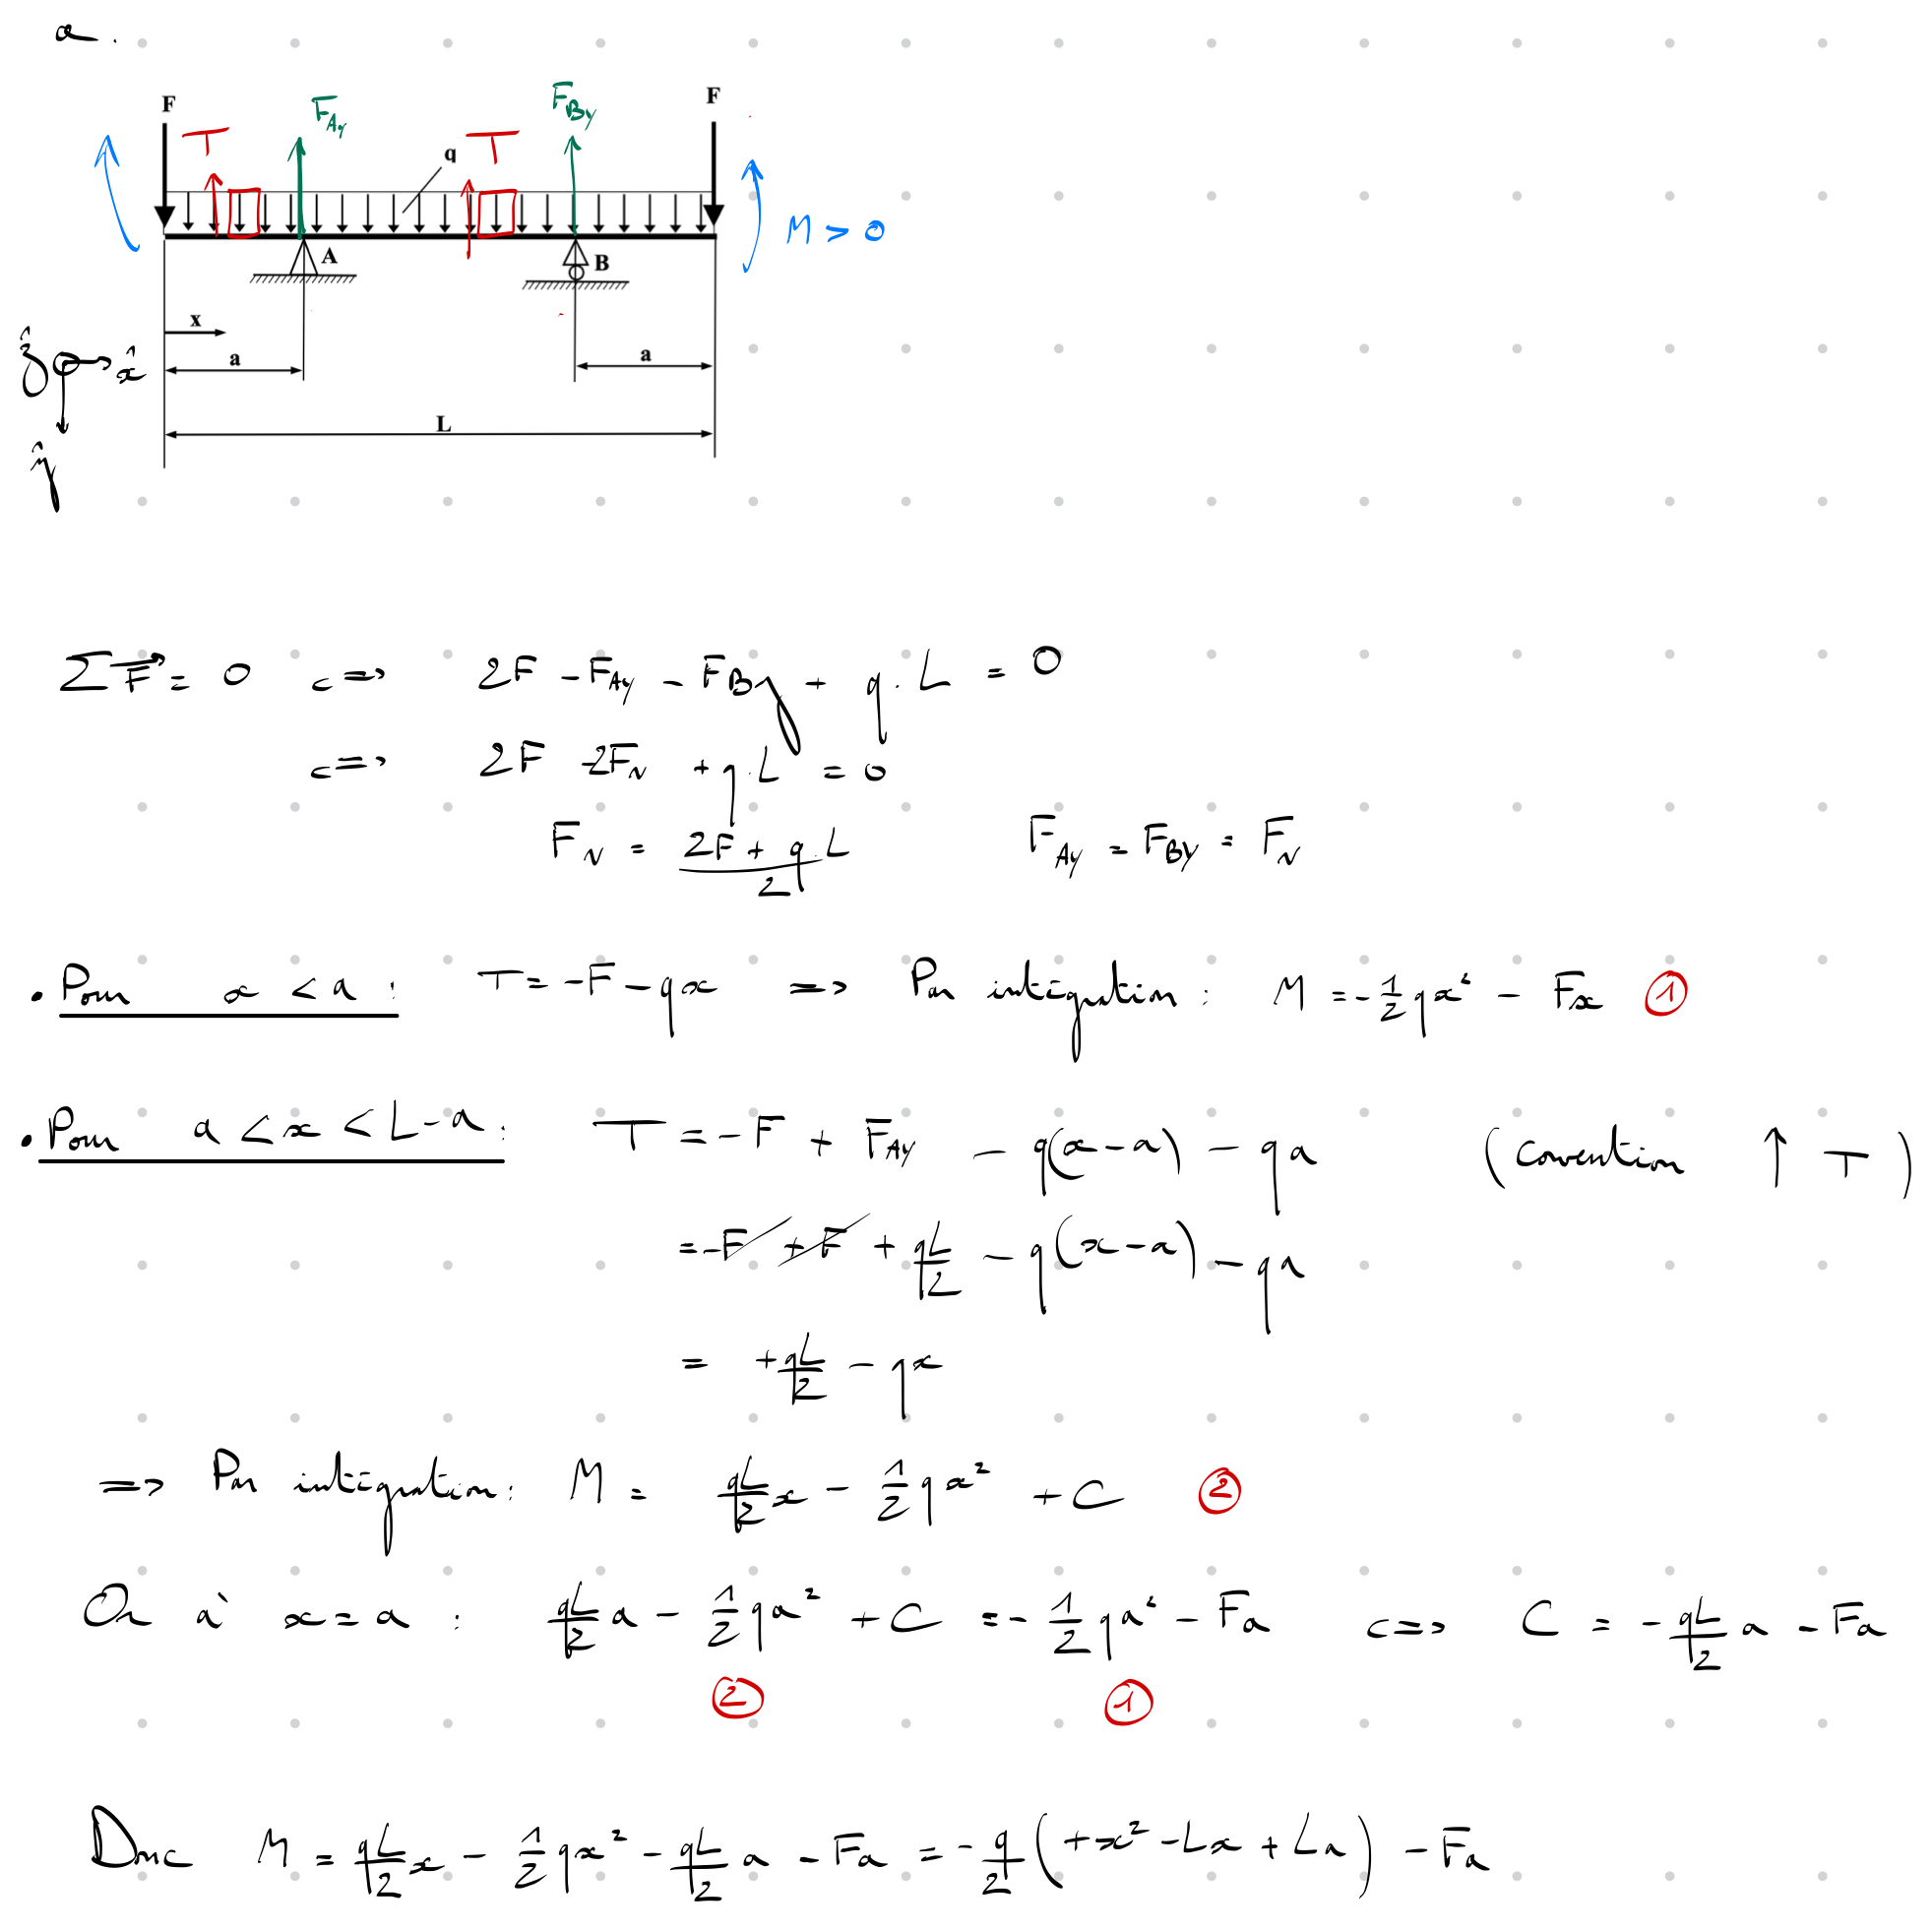 a.
F F_Ay F_By F
T q T
M > 0
A B
x
ẑ x̂
a a
L
ŷ
ΣF⃗ = 0 <=> 2F - F_Ay - F_By + q.L = 0
<=> 2F - 2F_N + q.L = 0
F_N = (2F + q.L)/2 F_Ay = F_By = F_N
• Pour x < a : T = -F - qx => Par intégration : M = -1/2 qx² - Fx ①
• Pour a < x < L-a : T = -F + F_Ay - q(x-a) - qa (convention ↑ T)
= -F + F + qL/2 - q(x-a) - qa
= +qL/2 - qx
=> Par intégration : M = qL/2 x - 1/2 qx² + C ②
Or à x = a : qL/2 a - 1/2 qa² + C = - 1/2 qa² - Fa <=> C = - qL/2 a - Fa
② ①
Donc M = qL/2 x - 1/2 qx² - qL/2 a - Fa = - q/2 (+x² - Lx + La) - Fa